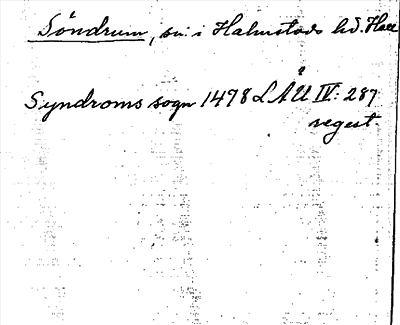 Söndrum, sn i Halmstads hd. Hall
Syndroms sogn 1478 LÅÜ IV: 287
regest.